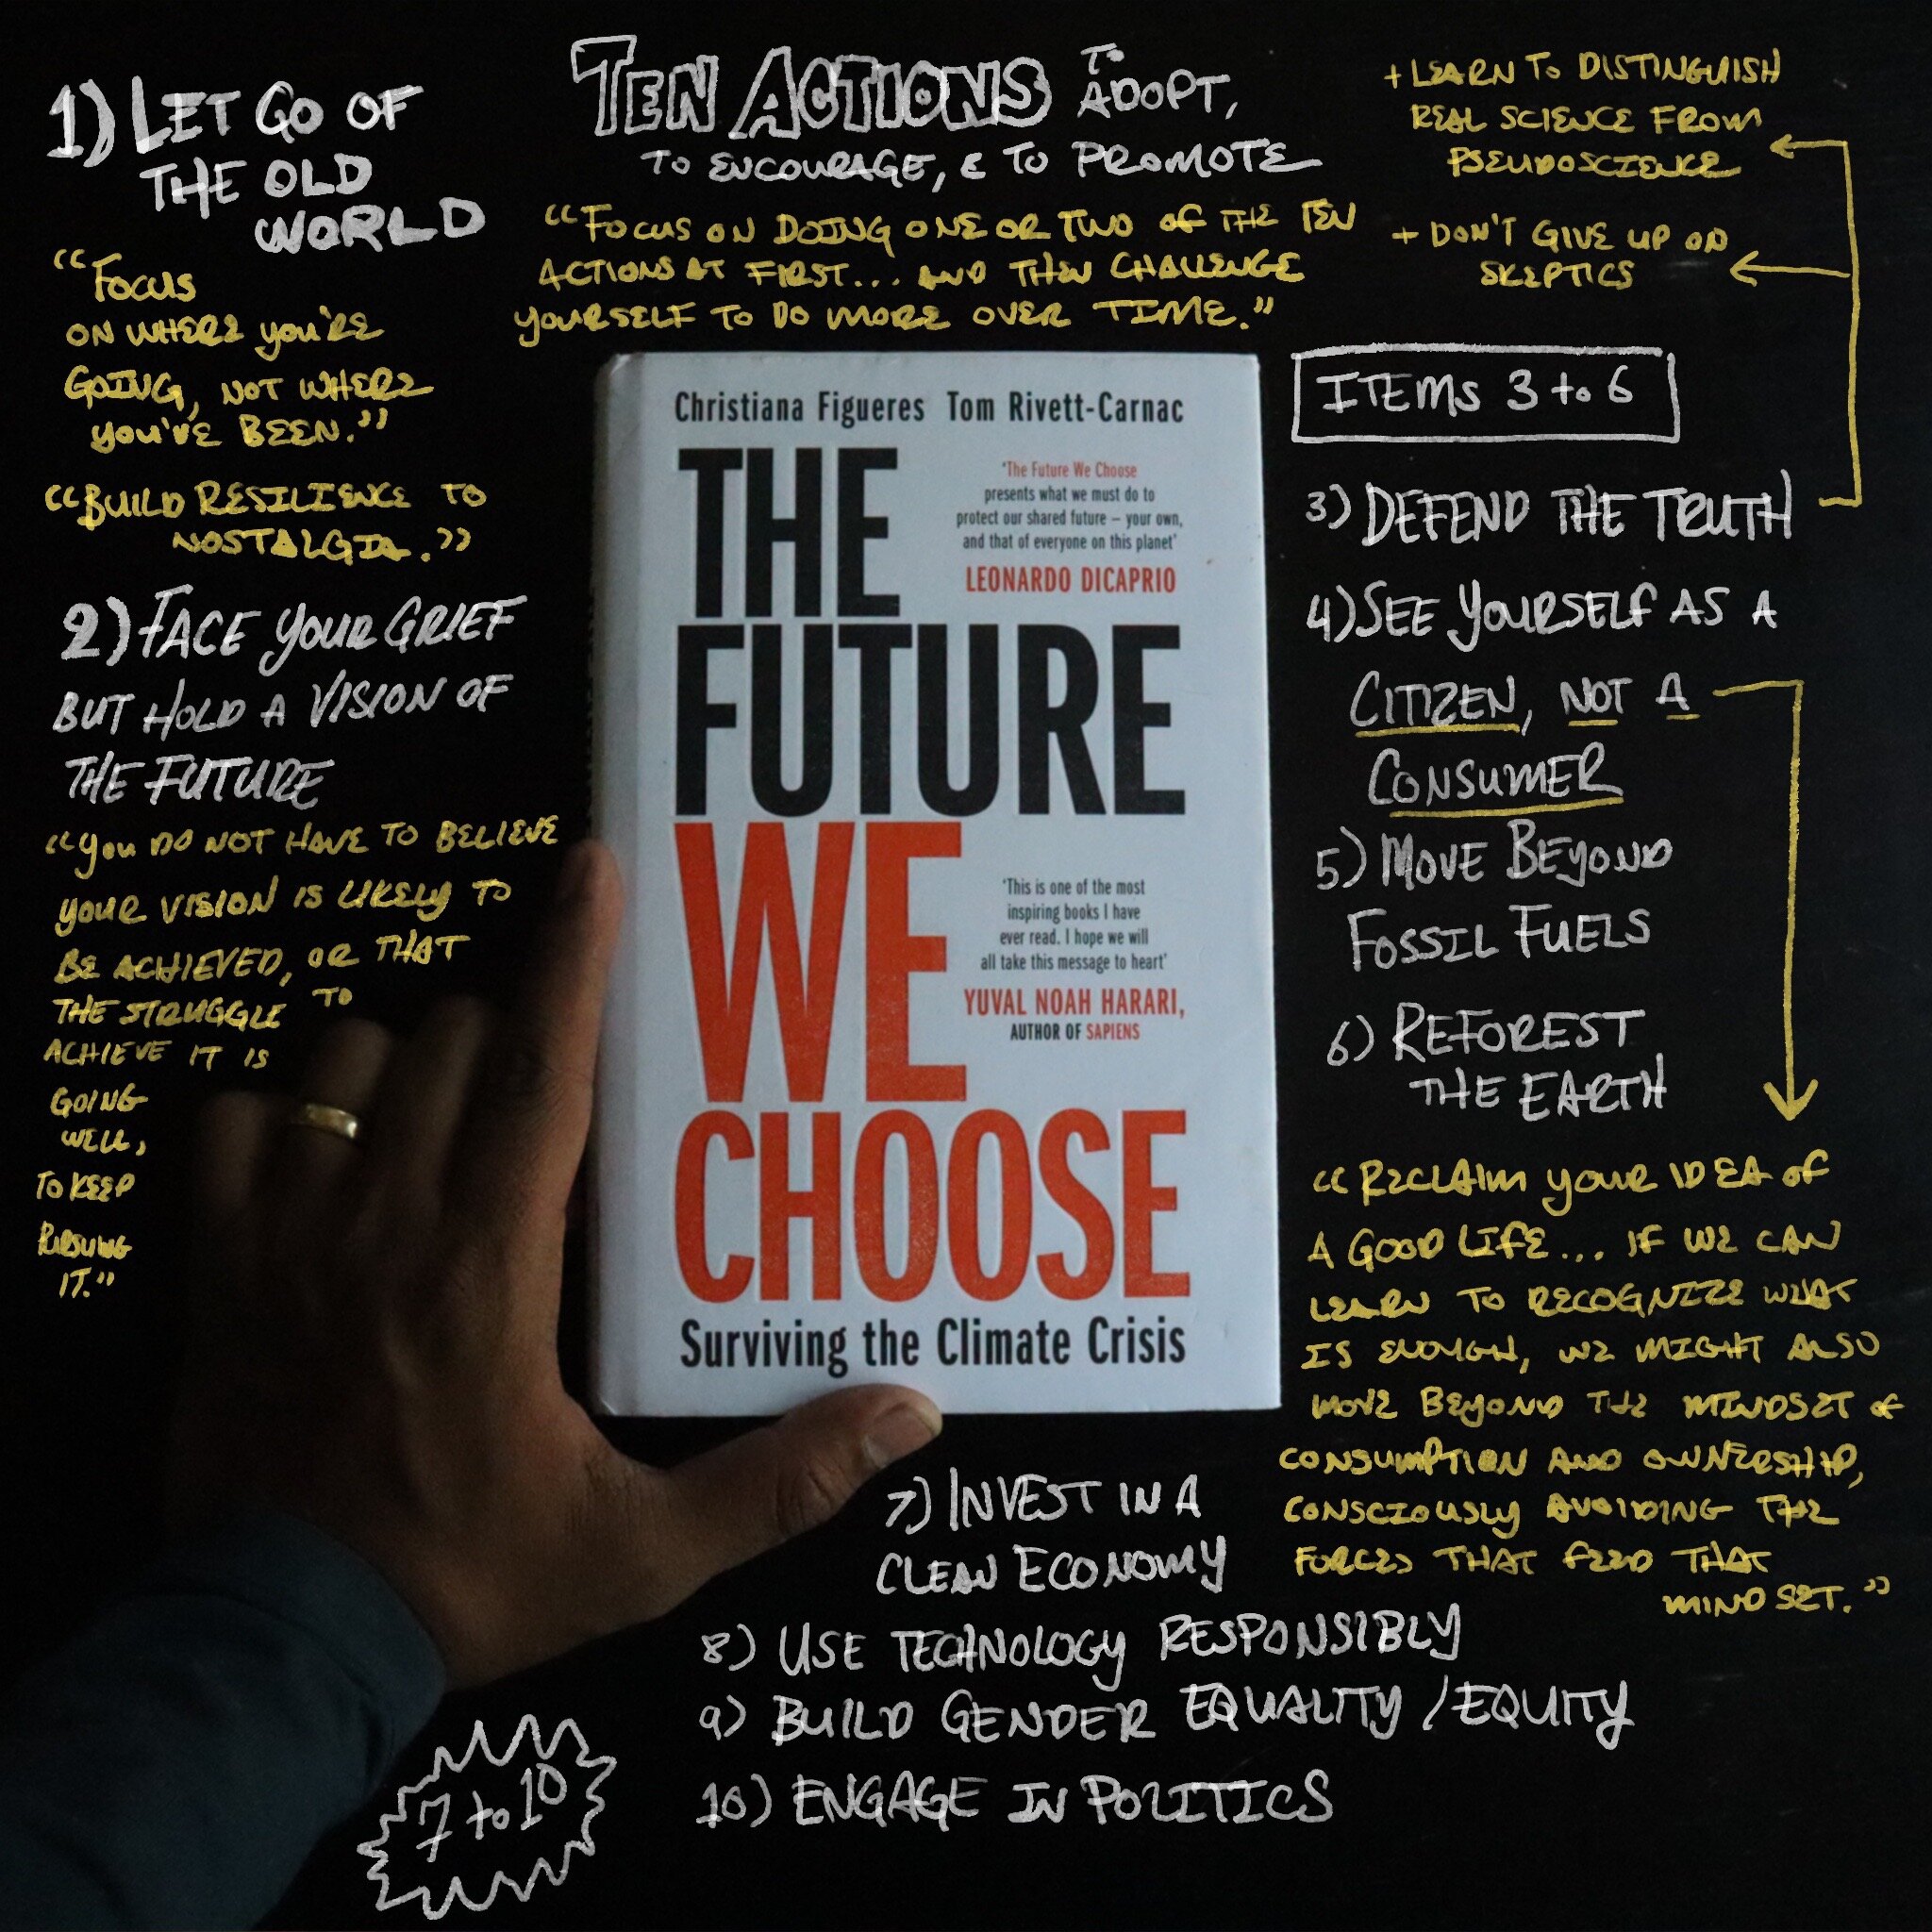 TEN ACTIONS TO ADOPT,
TO ENCOURAGE, & TO PROMOTE
"FOCUS ON DOING ONE OR TWO OF THE TEN
ACTIONS AT FIRST... AND THEN CHALLENGE
YOURSELF TO DO MORE OVER TIME."
1) LET GO OF
THE OLD
WORLD
"FOCUS
ON WHERE YOU'RE
GOING, NOT WHERE
YOU'VE BEEN."
"BUILD RESILIENCE TO
NOSTALGIA."
2) FACE YOUR GRIEF
BUT HOLD A VISION OF
THE FUTURE
"YOU DO NOT HAVE TO BELIEVE
YOUR VISION IS LIKELY TO
BE ACHIEVED, OR THAT
THE STRUGGLE TO
ACHIEVE IT IS
GOING
WELL,
TO KEEP
PURSUING
IT."
Christiana Figueres Tom Rivett-Carnac
THE
FUTURE
WE
CHOOSE
'The Future We Choose
presents what we must do to
protect our shared future – your own,
and that of everyone on this planet'
LEONARDO DICAPRIO
'This is one of the most
inspiring books I have
ever read. I hope we will
all take this message to heart'
YUVAL NOAH HARARI,
AUTHOR OF SAPIENS
Surviving the Climate Crisis
+ LEARN TO DISTINGUISH
REAL SCIENCE FROM
PSEUDOSCIENCE
+ DON'T GIVE UP ON
SKEPTICS
ITEMS 3 to 6
3) DEFEND THE TRUTH
4) SEE YOURSELF AS A
CITIZEN, NOT A
CONSUMER
5) MOVE BEYOND
FOSSIL FUELS
6) REFOREST
THE EARTH
"RECLAIM YOUR IDEA OF
A GOOD LIFE... IF WE CAN
LEARN TO RECOGNIZE WHAT
IS ENOUGH, WE MIGHT ALSO
MOVE BEYOND THE MINDSET OF
CONSUMPTION AND OWNERSHIP,
CONSCIOUSLY AVOIDING THE
FORCES THAT FEED THAT
MINDSET."
7) INVEST IN A
CLEAN ECONOMY
8) USE TECHNOLOGY RESPONSIBLY
9) BUILD GENDER EQUALITY / EQUITY
10) ENGAGE IN POLITICS
7 to 10